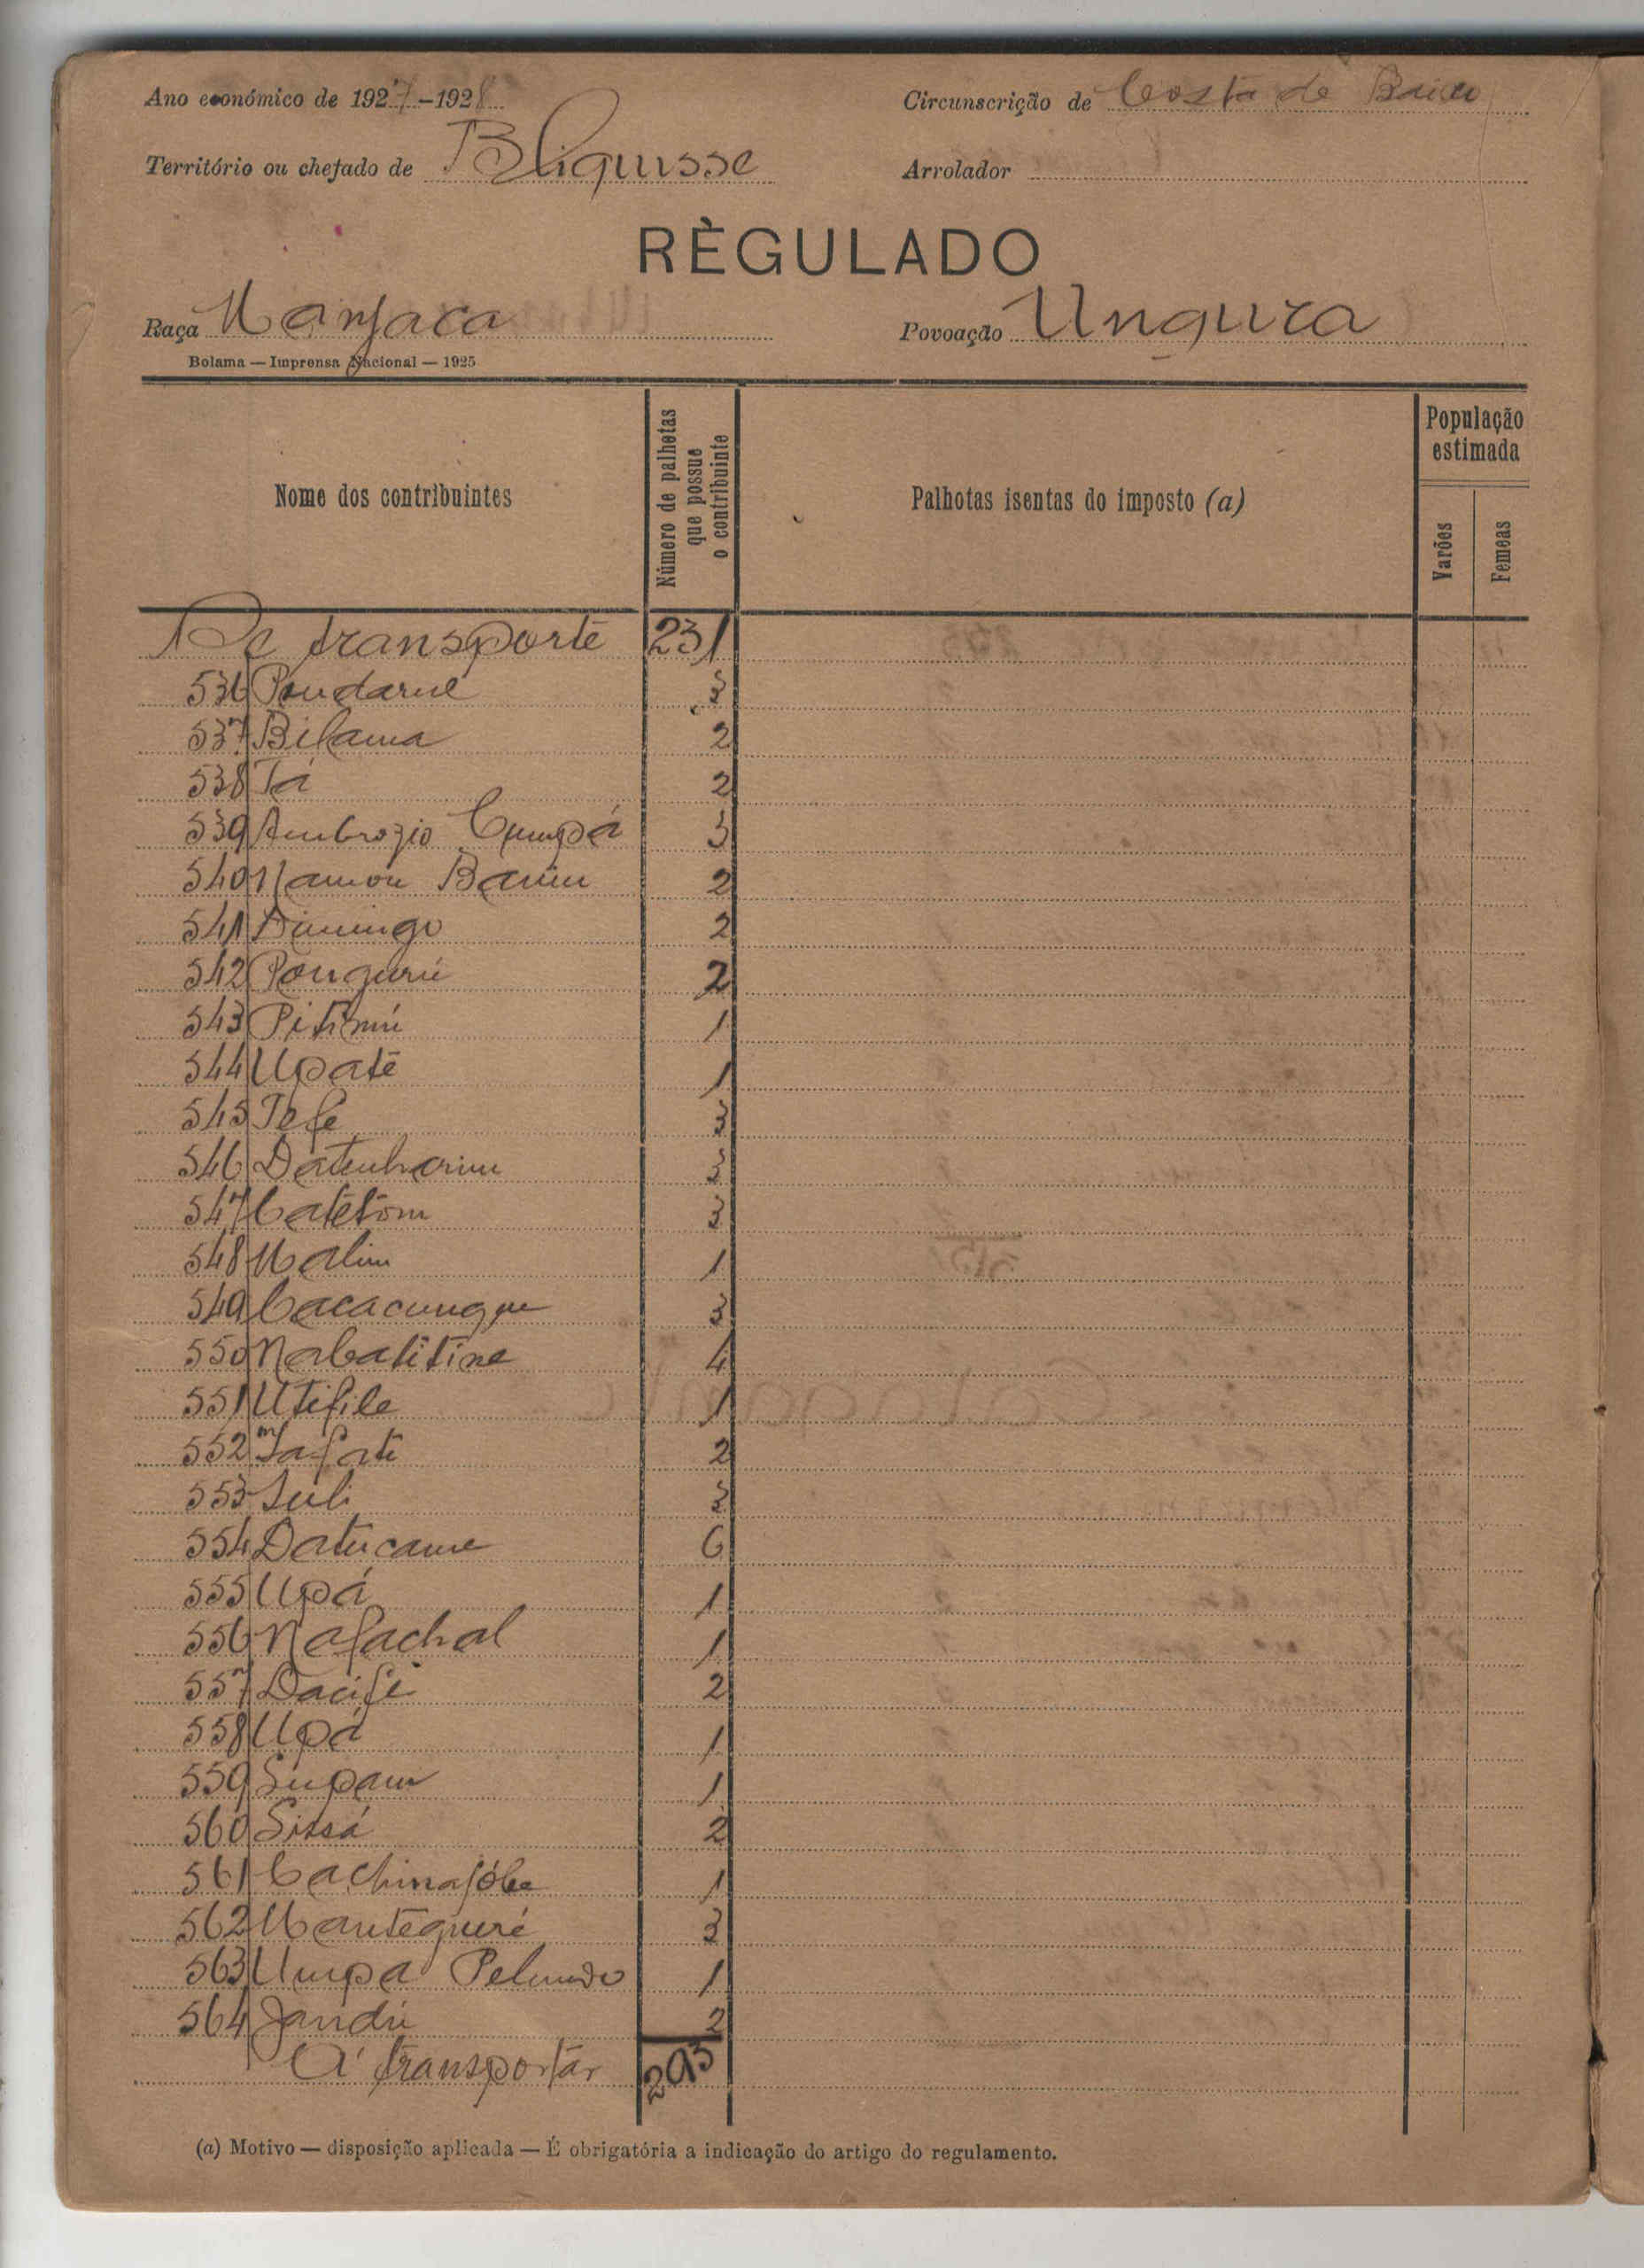 Ano económico de 1927-1928
Circunscrição de Costa de Baixo
Território ou chefado de Bliquisse
Arrolador
RÈGULADO
Raça Manjaca
Povoação Ungura
Bolama — Imprensa Nacional — 1925
Nome dos contribuintes
Número de palhotas que possue o contribuinte
Palhotas isentas do imposto (a)
População estimada
Varões
Femeas
De transporte 231
536 Poudarne 3
537 Bifama 2
538 Tá 2
539 Ambrozio Cumpá 3
540 Namon Banim 2
541 Dimingo 2
542 Pongurú 2
543 Pitimú 1
544 Upatê 1
545 Tefe 3
546 Datenharim 3
547 Catetom 3
548 Malim 1
549 Cacacungue 3
550 Nabatitine 4
551 Utifile 1
552 Safati 2
553 Suli 3
554 Datucame 6
555 Upá 1
556 Nafachal 1
557 Dacifi 2
558 Upá 1
559 Supam 1
560 Sissá 2
561 Cachinafóbe 1
562 Manteguré 3
563 Umpa Pelundo 1
564 Jandú 2
A transportar 293
(a) Motivo — disposição aplicada — É obrigatória a indicação do artigo do regulamento.